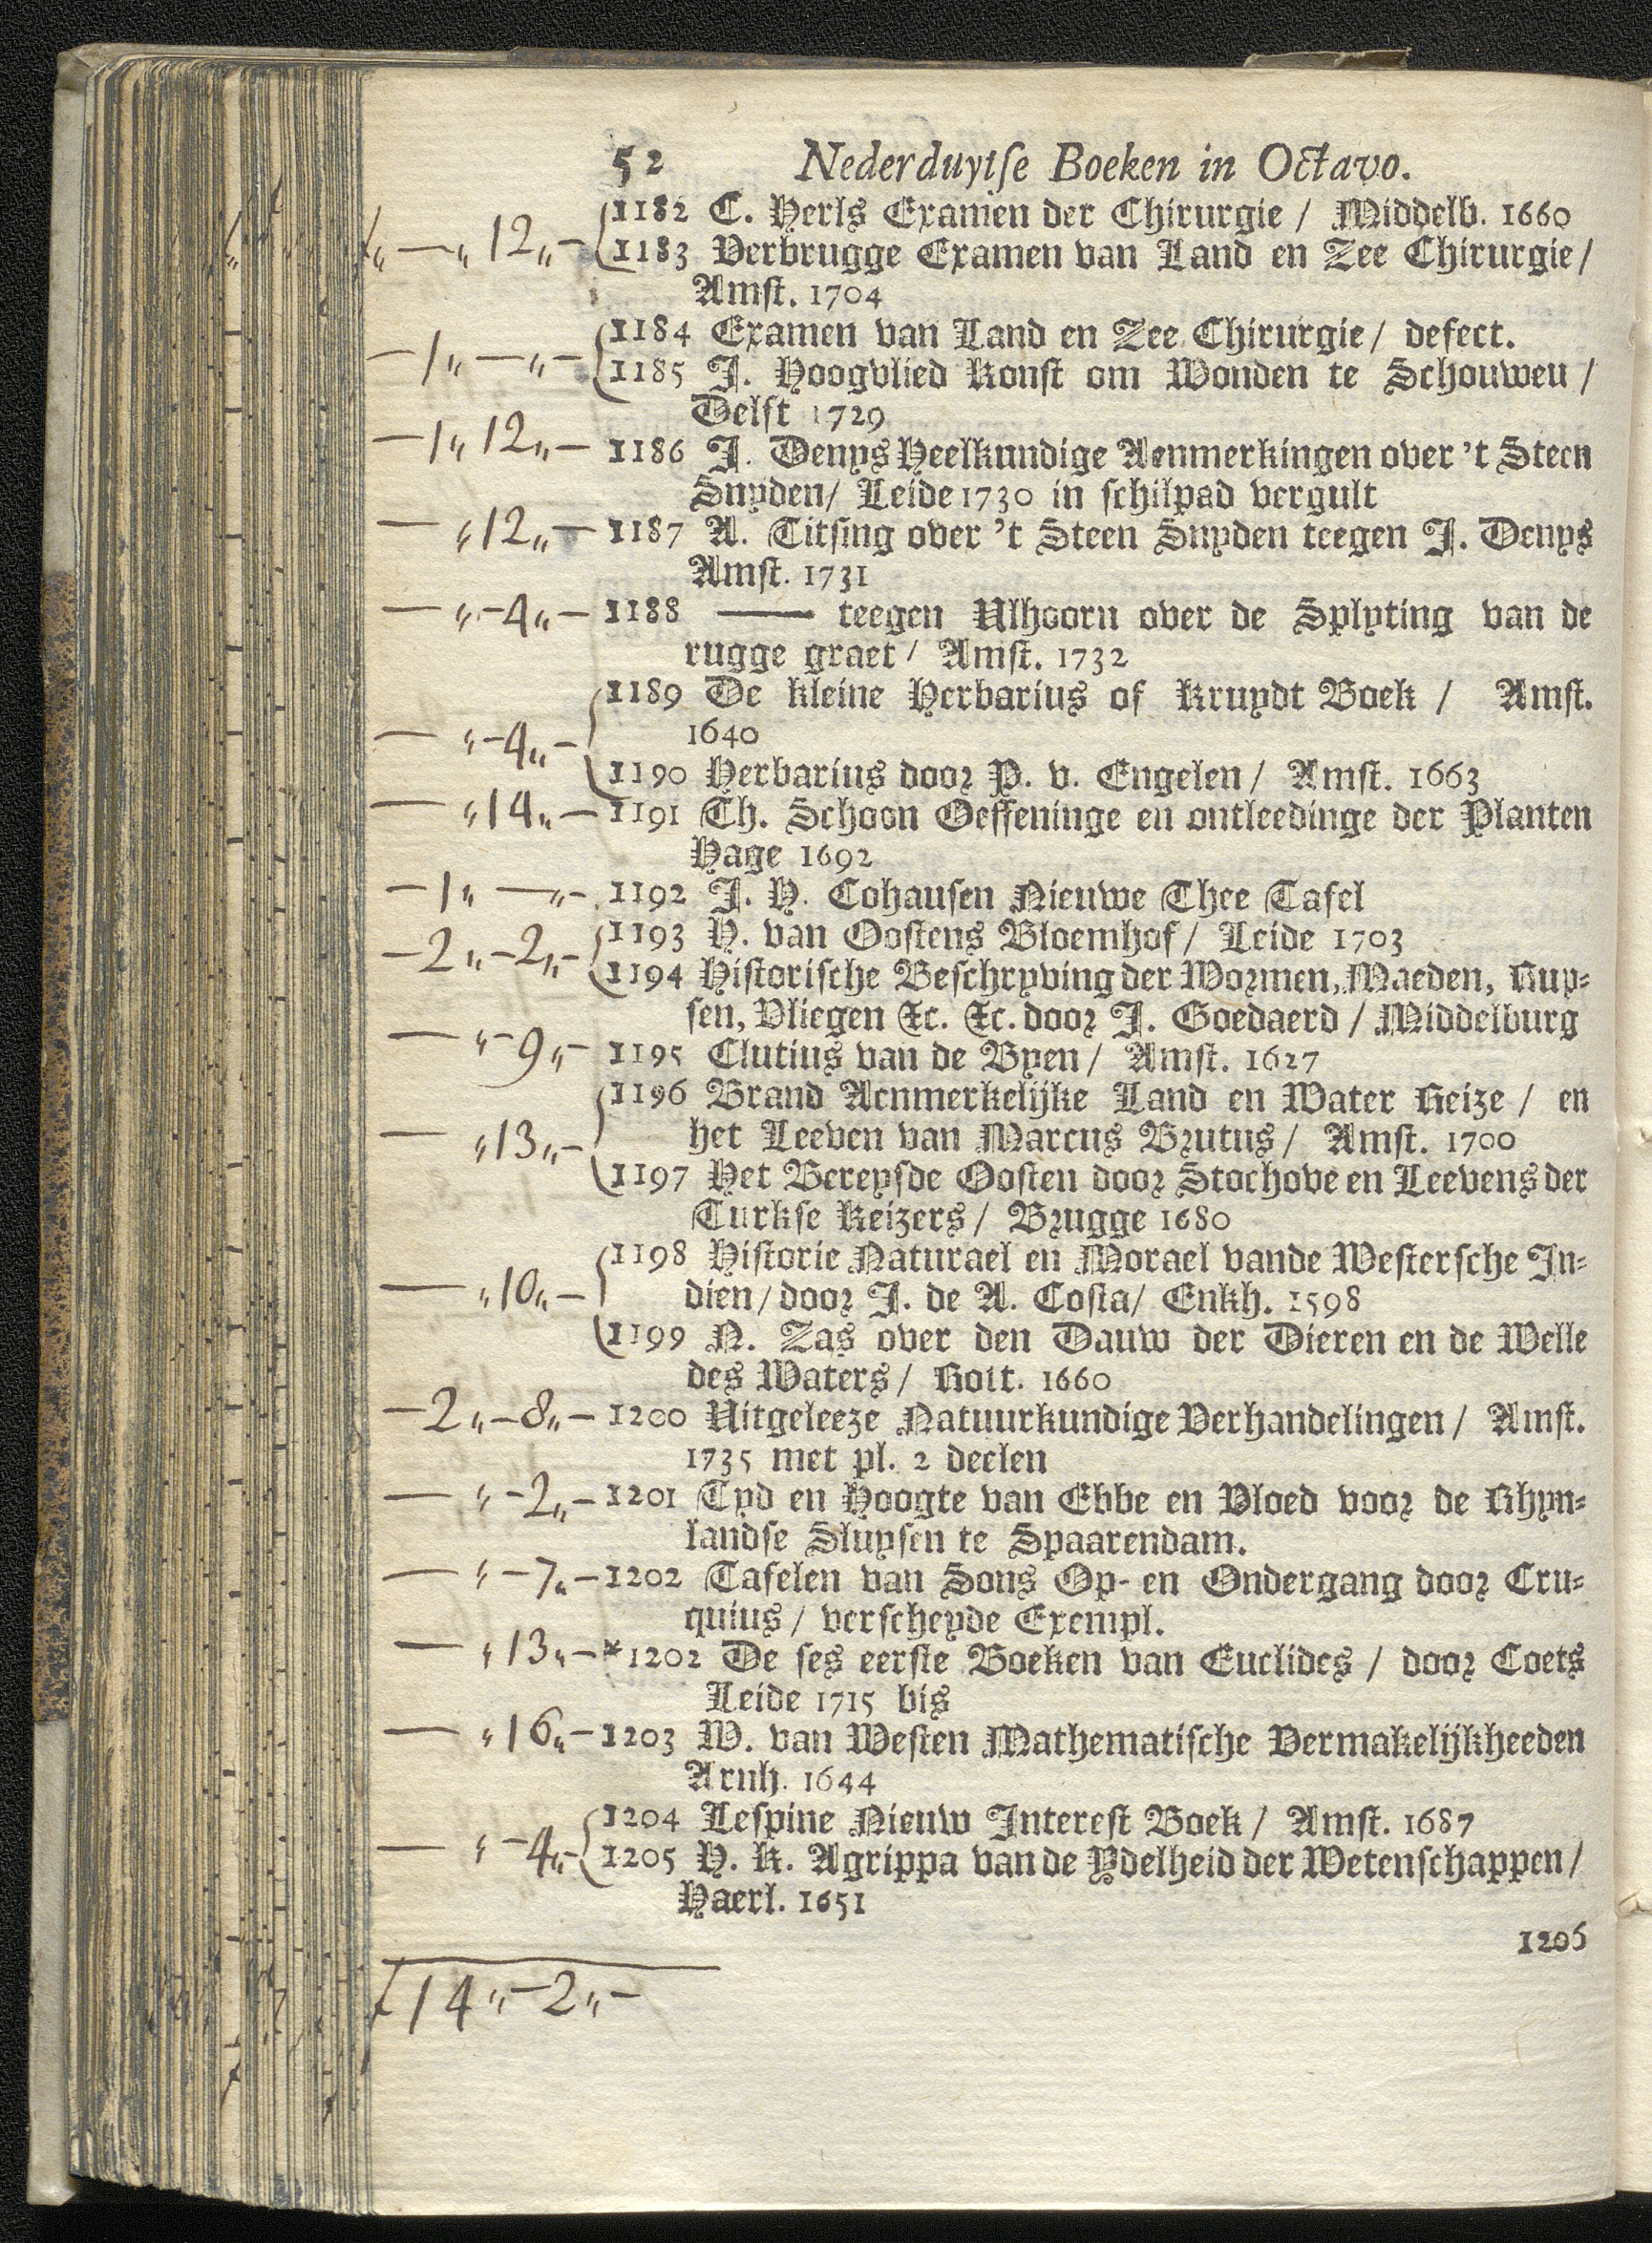 52 Nederduytse Boeken in Octavo.
— „ 12 „ — 1182 C. Herls Examen der Chirurgie / Middelb. 1660
1183 Verbrugge Examen van Land en Zee Chirurgie /
Amst. 1704
1184 Examen van Land en Zee Chirurgie / defect.
— 1 „ — „ — 1185 J. Hoogvlied Konst om Wonden te Schouweu /
Delft 1729
— 1 „ 12 „ — 1186 J. Denys Heelkundige Aenmerkingen over 't Steen
Snyden / Leide 1730 in schilpad vergult
— „ 12 „ — 1187 A. Titsing over 't Steen Snyden teegen J. Denys
Amst. 1731
— „ — 4 „ — 1188 —— teegen Ulhoorn over de Splyting van de
rugge graet / Amst. 1732
1189 De kleine Herbarius of Kruydt Boek / Amst.
— „ — 4 „ — 1640
1190 Herbarius door P. v. Engelen / Amst. 1663
— „ 14 „ — 1191 Th. Schoon Oeffeninge en ontleedinge der Planten
Hage 1692
— 1 „ — „ — 1192 J. H. Cohausen Nieuwe Thee Tafel
— 2 „ — 2 „ — 1193 H. van Oostens Bloemhof / Leide 1703
1194 Historische Beschryving der Wormen, Maeden, Rup-
sen, Vliegen &c. &c. door J. Goedaerd / Middelburg
— „ — 9 „ — 1195 Clutius van de Byen / Amst. 1627
1196 Brand Aenmerkelijke Land en Water Reize / en
— „ 13 „ — het Leeven van Marcus Brutus / Amst. 1700
1197 Het Bereysde Oosten door Stochove en Leevens der
Turkse Keizers / Brugge 1680
1198 Historie Naturael en Morael vande Westersche In-
— „ 10 „ — dien / door J. de A. Costa / Enkh. 1598
1199 N. Zas over den Dauw der Dieren en de Welle
des Waters / Rott. 1660
— 2 „ — 8 „ — 1200 Uitgeleeze Natuurkundige Verhandelingen / Amst.
1735 met pl. 2 deelen
— „ — 2 „ — 1201 Tyd en Hoogte van Ebbe en Vloed voor de Rhyn-
landse Sluysen te Spaarendam.
— „ — 7 „ — 1202 Tafelen van Sons Op- en Ondergang door Cru-
quius / verscheyde Exempl.
— „ 13 „ — *1202 De ses eerste Boeken van Euclides / door Coets
Leide 1715 bis
— „ 16 „ — 1203 W. van Westen Mathematische Vermakelijkheeden
Arnh. 1644
1204 Lespine Nieuw Interest Boek / Amst. 1687
— „ — 4 „ — 1205 H. K. Agrippa van de Ydelheid der Wetenschappen /
Haerl. 1651
1206
ƒ 14 „ — 2 „ —